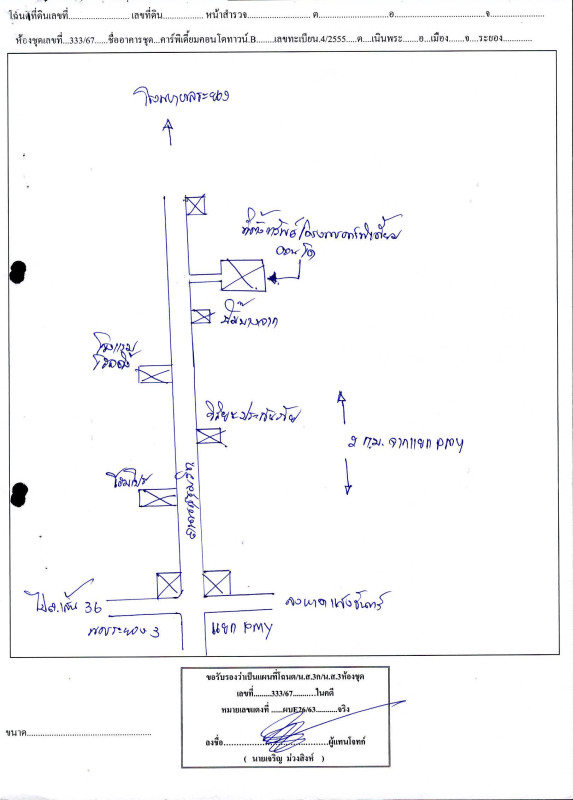 โฉนดที่ดินเลขที่..................... เลขที่ดิน.............. หน้าสำรวจ........................ต........................อ................................จ...................
ห้องชุดเลขที่...333/67......ชื่ออาคารชุด...คาร์พีเดี้ยมคอนโดทาวน์.B........เลขทะเบียน.4/2555.....ต....เนินพระ.......อ...เมือง......จ....ระยอง.............
โรงพยาบาลระยอง
ที่ตั้งทรัพย์/โครงการคาร์พีเดี้ยม
คอนโด
ปั๊มบางจาก
โรงแรม
2 ก.ม. จากแยก PMY
โฮมโปร
ถนนสุขุมวิท
ไป ถ.เส้น 36
ลงหาดแสงจันทร์
ระยอง 3
แยก PMY
ขอรับรองว่าเป็นแผนที่โฉนด/น.ส.3ก/น.ส.3ห้องชุด
เลขที่.........333/67...........ในคดี
หมายเลขแดงที่ ......ผบE76/63..........จริง
ลงชื่อ.......................................ผู้แทนโจทก์
( นายเจริญ ม่วงสิงห์ )
ขนาด............................................................